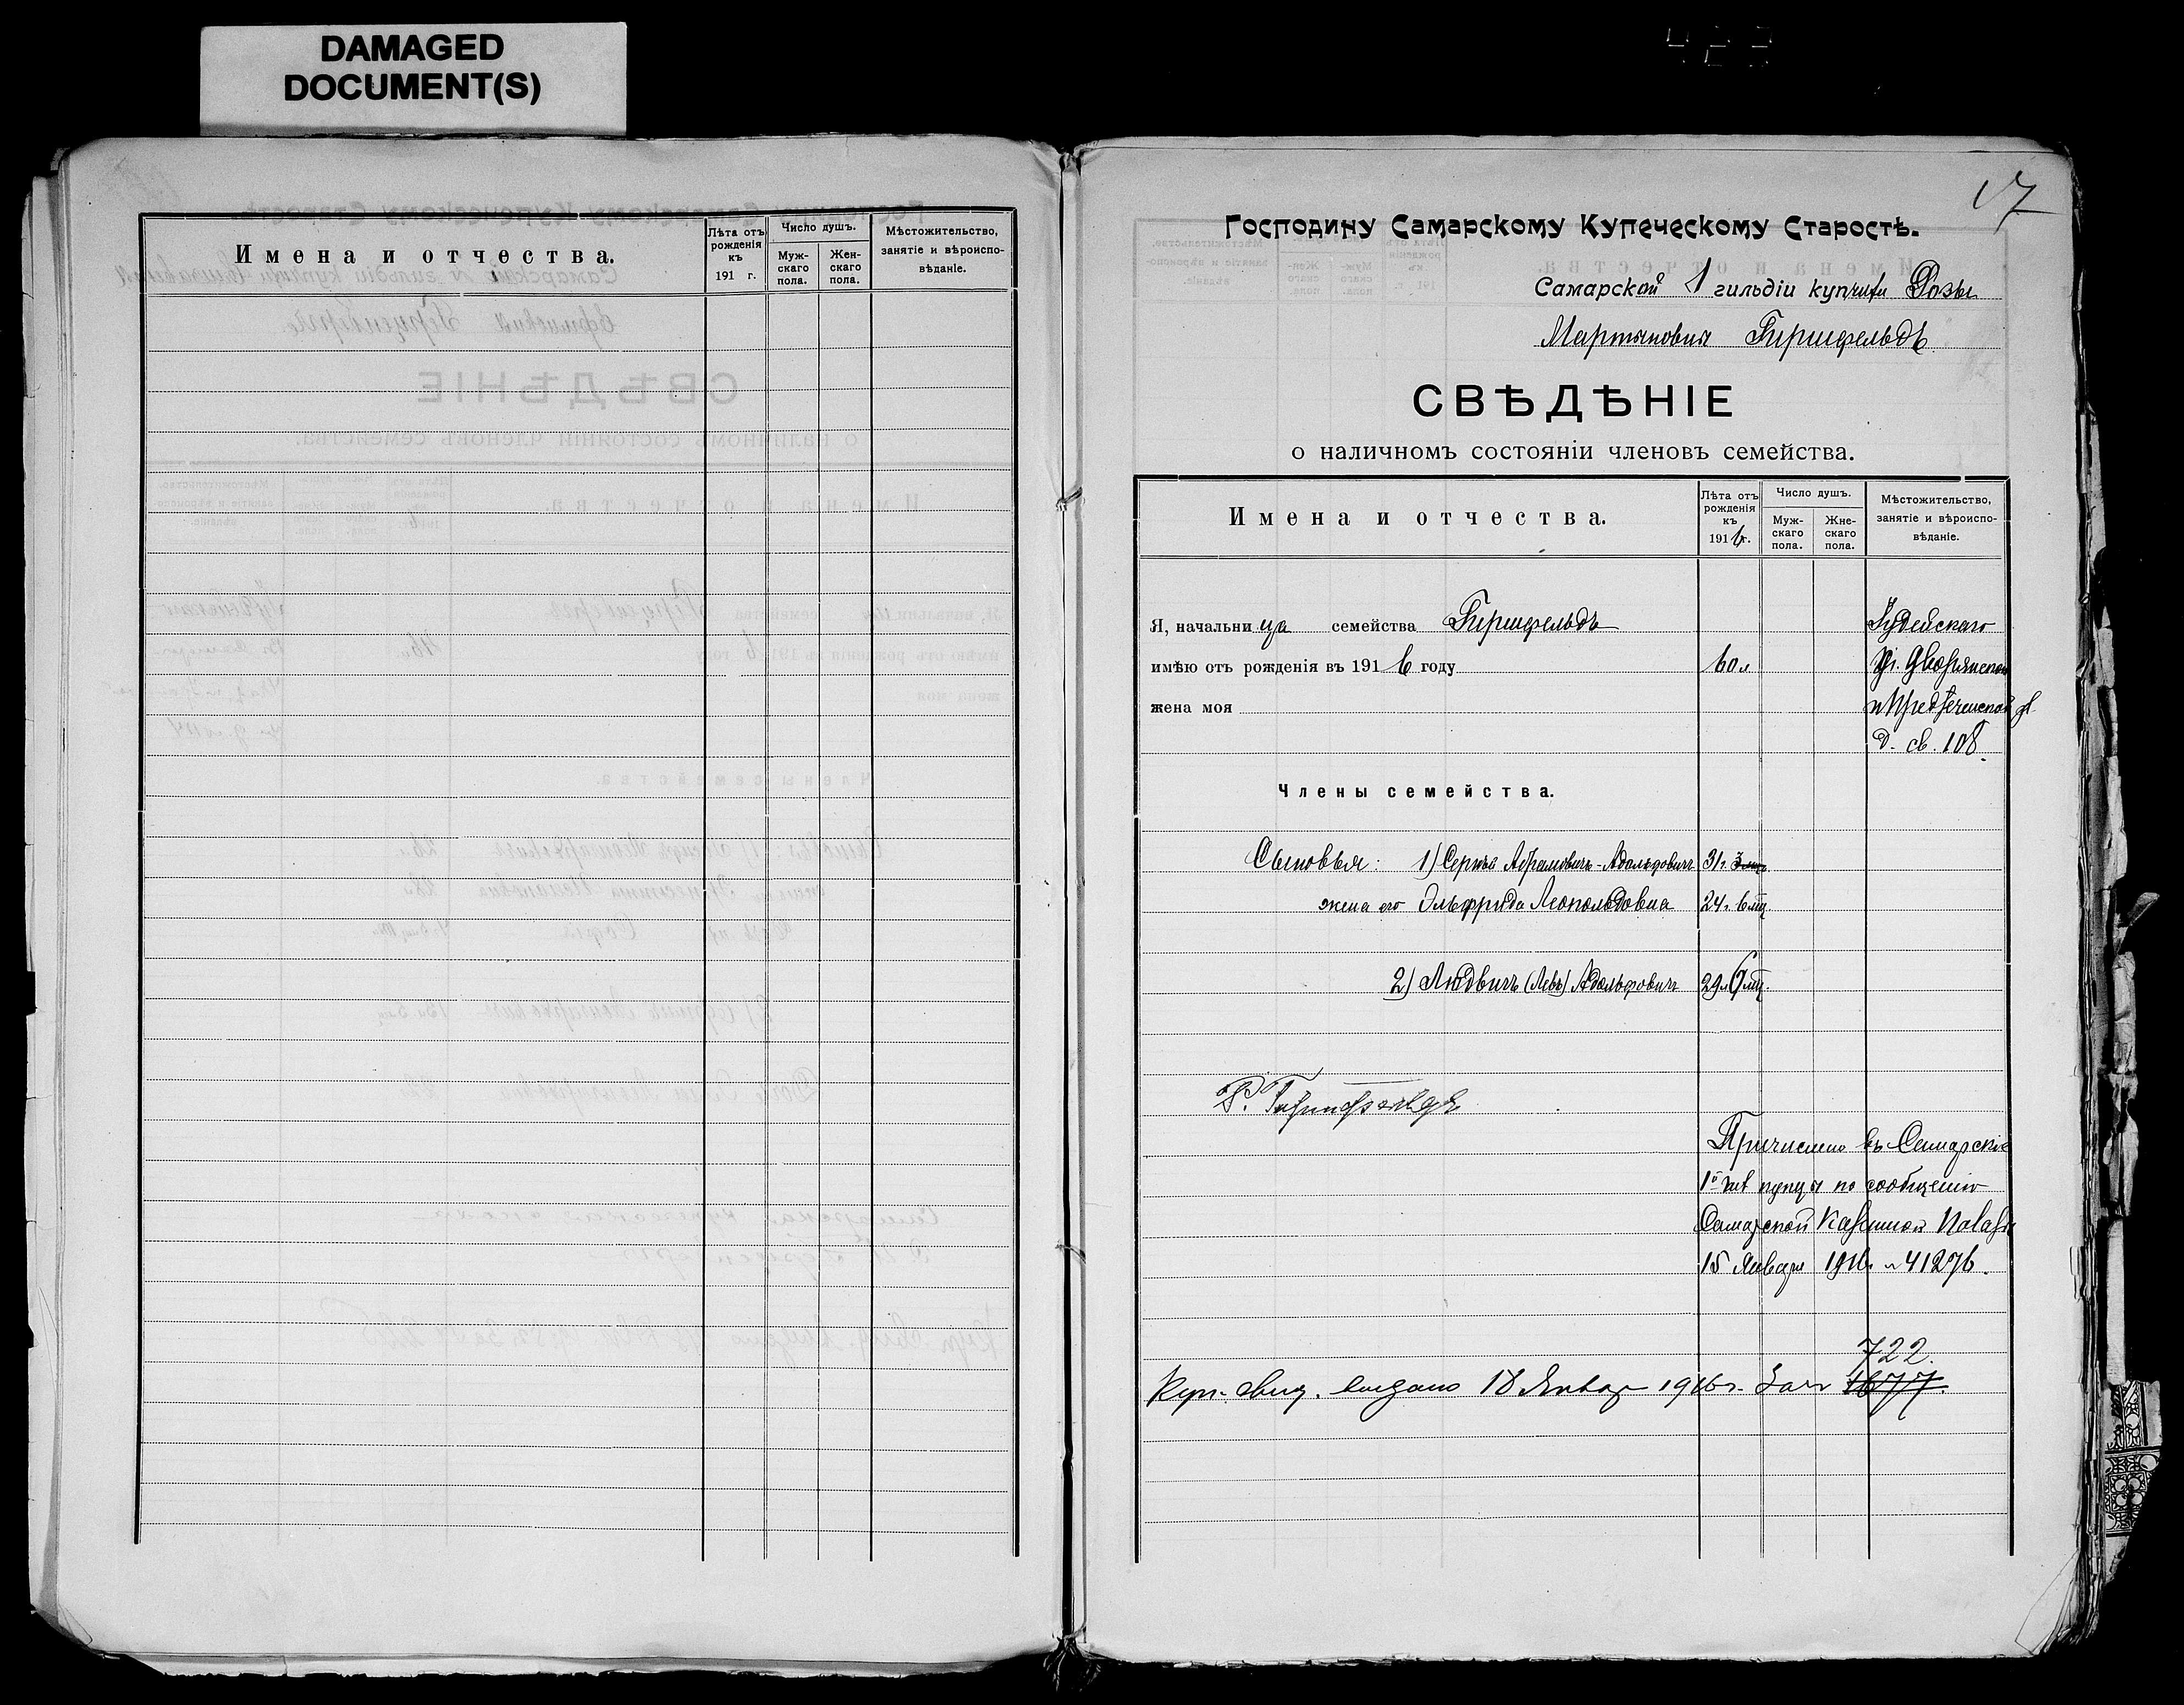 DAMAGED
DOCUMENT(S)
Имена и отчества.
Лѣта отъ рожденія къ 191 г.
Число душъ.
Муж-скаго пола.
Жен-скаго пола.
Мѣстожительство, занятіе и вѣроиспо-вѣданіе.
17
Господину Самарскому Купеческому Старостѣ.
Самарской 1 гильдіи купчихи Розы
Мартыновны Гиршфельдъ
СВѢДѢНІЕ
о наличномъ состояніи членовъ семейства.
Имена и отчества.
Лѣта отъ рожденія къ 1916 г.
Число душъ.
Муж-скаго пола.
Жне-скаго пола.
Мѣстожительство, занятіе и вѣроиспо-вѣданіе.
Я, начальница семейства Гиршфельдъ Іудейскаго
имѣю отъ рожденія въ 1916 году 60 л Дворянской
жена моя и Предтеченской
д. 108.
Члены семейства.
Сыновья: 1) Сергѣй Абрамовичъ-Адольфовичъ 31 г.
жена его Эльфрида Леопольдовна 24 г. 6 мц.
2) Людвигъ (Левъ) Адольфовичъ 29 л. мц.
Р. Гиршфельдъ
Причислена въ Самарскіе
1й купцы по сообщенію
Самарской Казенной Палаты
15 Января 1916 г № 41276.
722.
Куп. свид. выдано 18 Январ 1916 г. за № 1677.